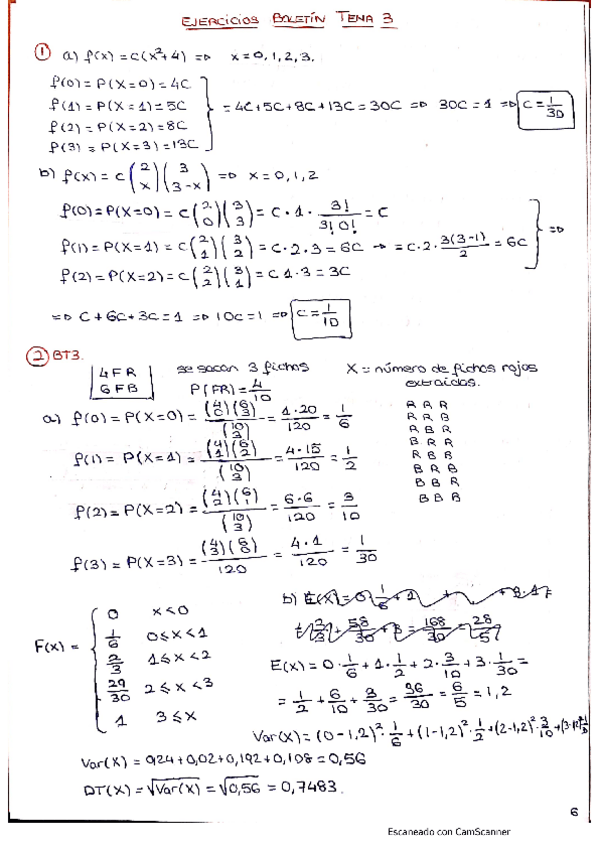 EJERCICIOS BOLETÍN TEMA 3
① a) f(x) = c(x²+4) => x = 0, 1, 2, 3.
f(0) = P(X=0) = 4C
f(1) = P(X=1) = 5C
f(2) = P(X=2) = 8C
f(3) = P(X=3) = 13C
= 4C+5C+8C+13C = 30C => 30C = 1 => C = 1/30
b) f(x) = c (2 x)(3 3-x) => x = 0, 1, 2
f(0) = P(X=0) = c (2 0)(3 3) = c · 1 · 3!/3!0! = c
f(1) = P(X=1) = c (2 1)(3 2) = c · 2 · 3 = 6C → = c · 2 · 3(3-1)/2 = 6C
f(2) = P(X=2) = c (2 2)(3 1) = c 1 · 3 = 3C
=>
=> C + 6C + 3C = 1 => 10C = 1 => C = 1/10
② BT3.
4 F R
6 F B
se sacan 3 fichas
P(FR) = 4/10
X = número de fichas rojas
extraidas.
a) f(0) = P(X=0) = (4 0)(6 3)/(10 3) = 1·20/120 = 1/6
f(1) = P(X=1) = (4 1)(6 2)/(10 3) = 4·15/120 = 1/2
f(2) = P(X=2) = (4 2)(6 1)/(10 3) = 6·6/120 = 3/10
f(3) = P(X=3) = (4 3)(6 0)/120 = 4·1/120 = 1/30
R R R
R R B
R B R
B R R
R B B
B R B
B B R
B B B
F(x) =
0 x<0
1/6 0≤x<1
2/3 1≤x<2
29/30 2≤x<3
1 3≤x
b)
E(X) = 0 · 1/6 + 1 · 1/2 + 2 · 3/10 + 3 · 1/30 =
= 1/2 + 6/10 + 3/30 = 36/30 = 6/5 = 1,2
Var(X) = (0-1,2)² · 1/6 + (1-1,2)² · 1/2 + (2-1,2)² · 3/10 +
Var(X) = 0,24 + 0,02 + 0,192 + 0,108 = 0,56
DT(X) = √Var(X) = √0,56 = 0,7483.
6
Escaneado con CamScanner